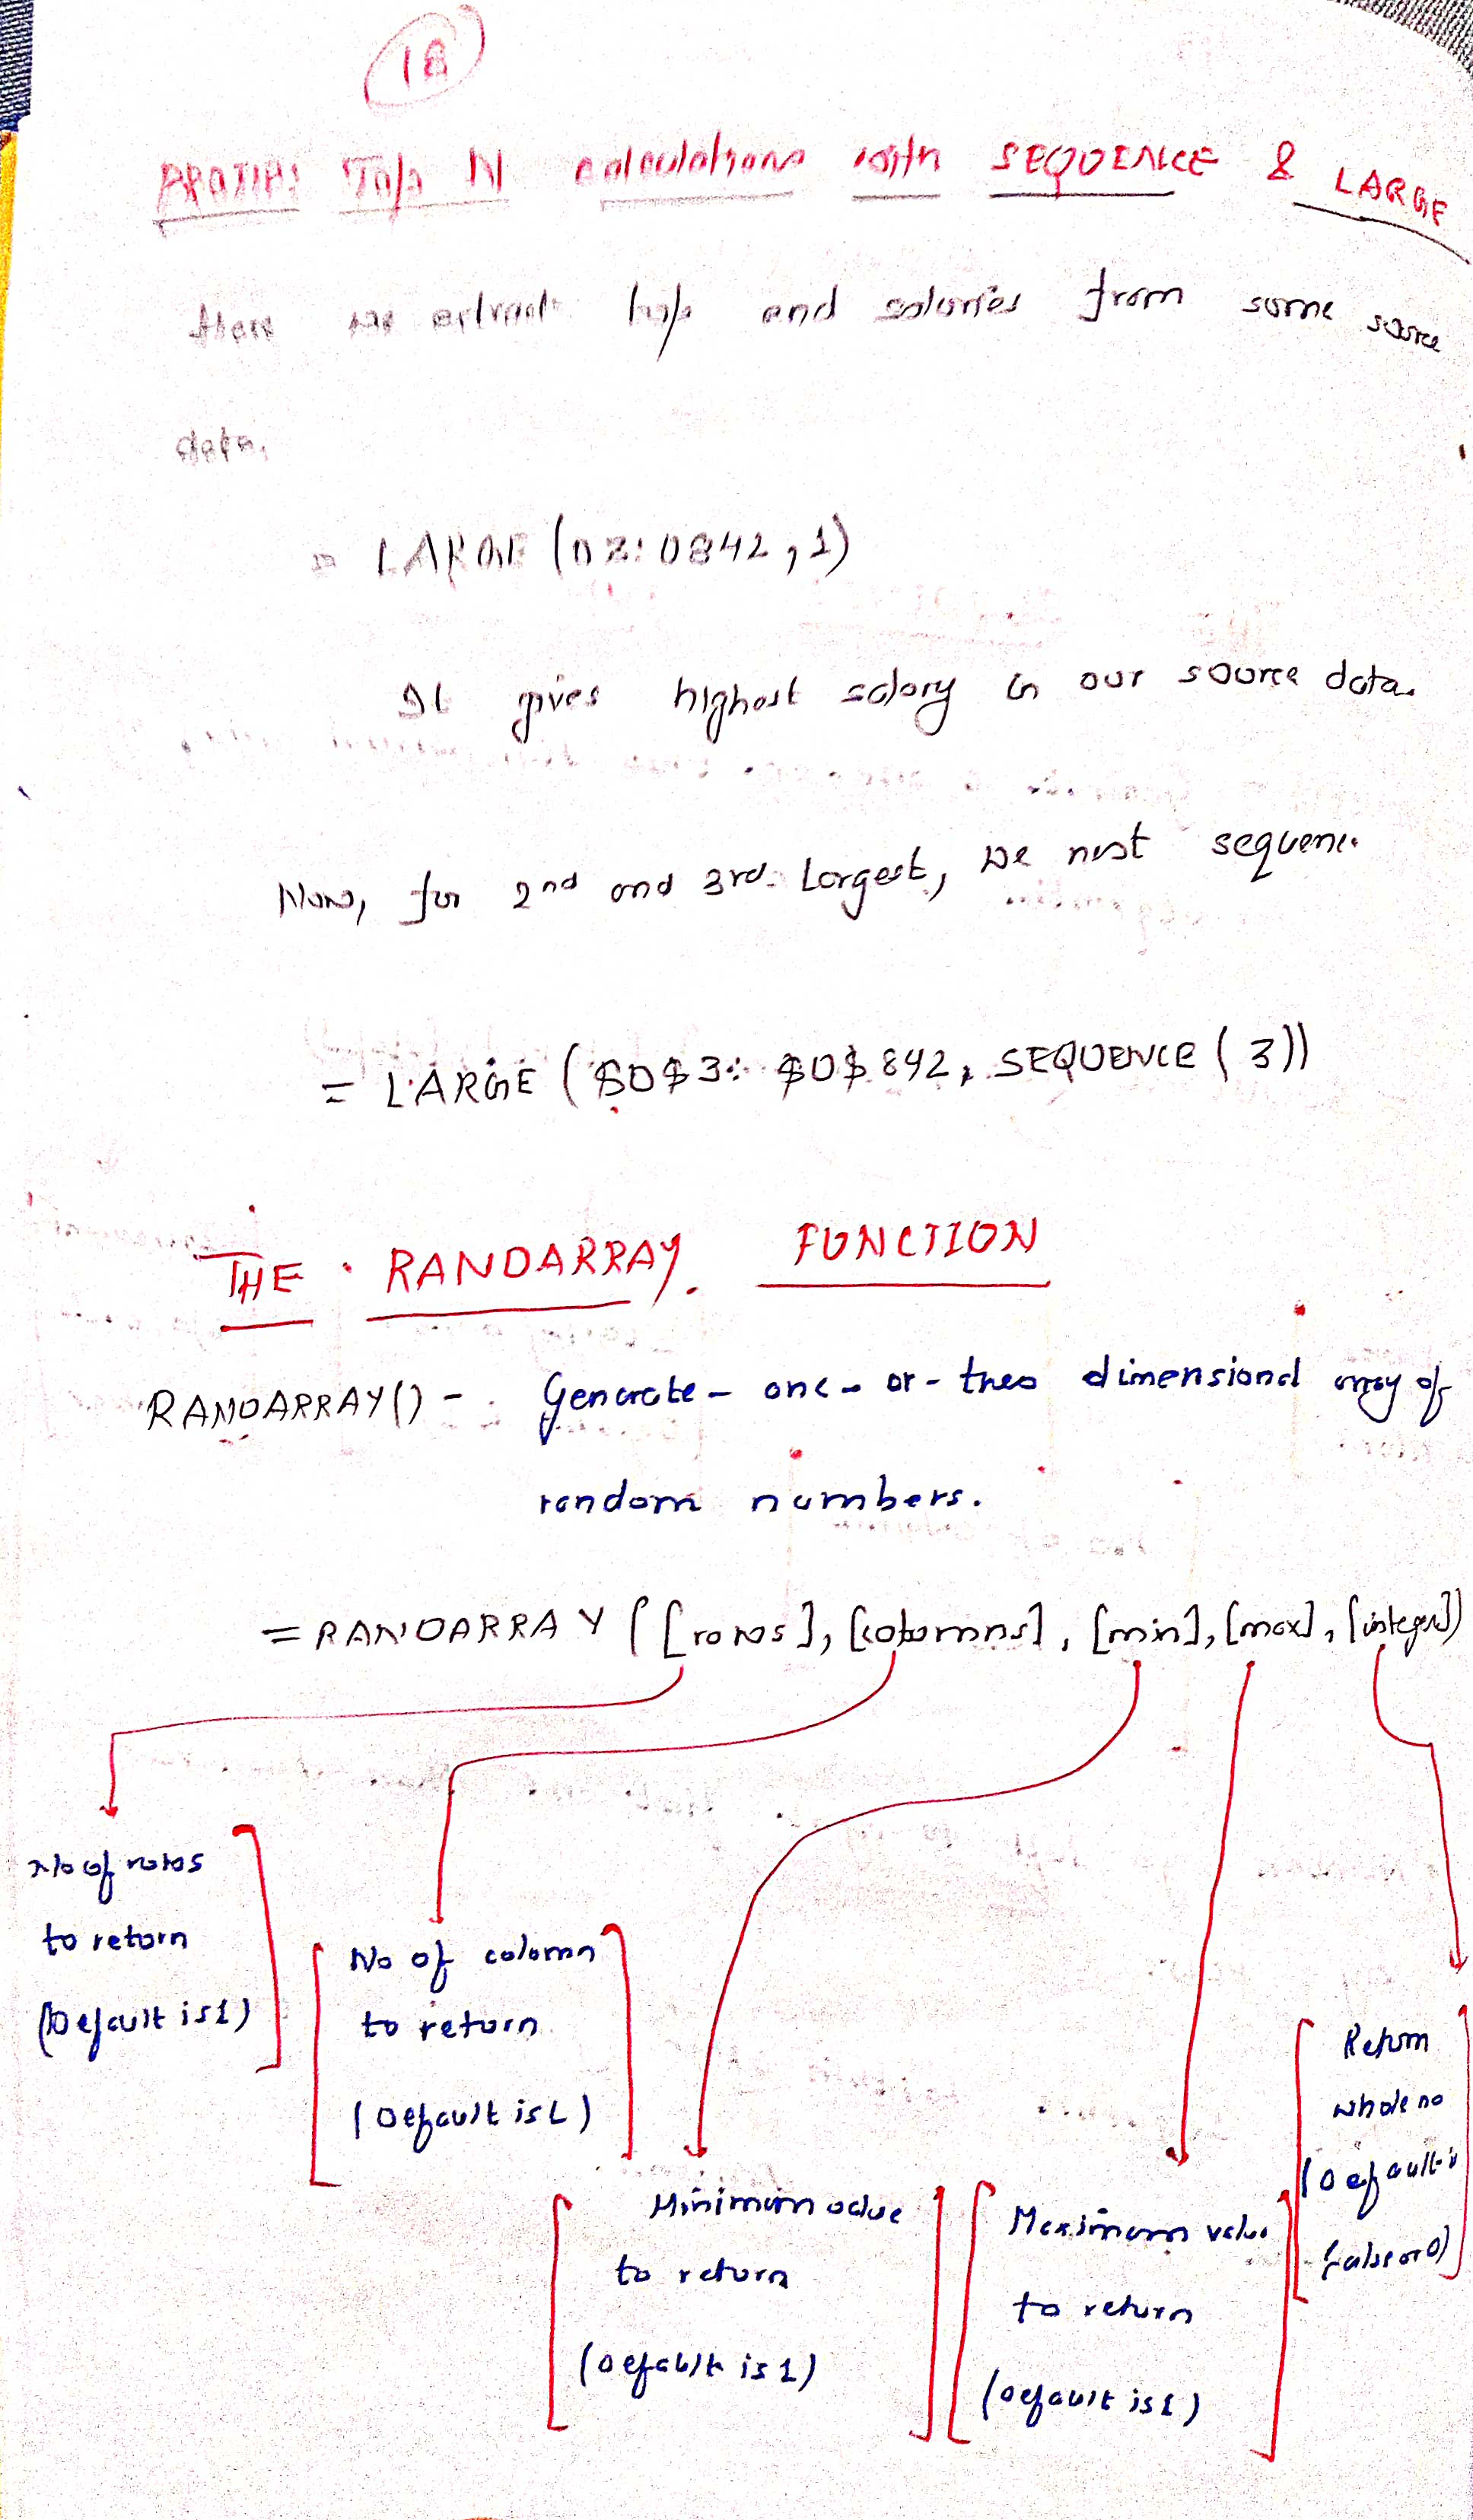 18
PROTIP: Top N calculations with SEQUENCE & LARGE
Here we extract top and salaries from some source
data.
= LARGE (D3:D842,1)
It gives highest salary in our source data.
Now, for 2nd and 3rd Largest, we nest sequence
= LARGE ($D$3: $D$842, SEQUENCE (3))
THE RANDARRAY FUNCTION
RANDARRAY() - Generate - one - or - two dimensional array of
random numbers.
= RANDARRAY ([rows], [columns], [min], [max], [integer])
No of rows
to return
(Default is 1)
No of column
to return
(Default is 1)
Minimum value
to return
(Default is 1)
Maximum value
to return
(Default is 1)
Return
whole no
(Default is
false or 0)